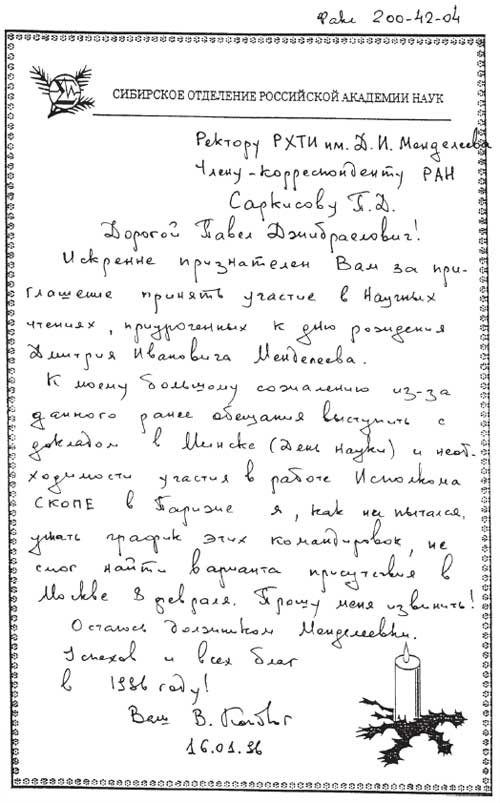 Факс 200-42-04
СИБИРСКОЕ ОТДЕЛЕНИЕ РОССИЙСКОЙ АКАДЕМИИ НАУК
Ректору РХТИ им. Д.И. Менделеева
Члену-корреспонденту РАН
Саркисову П.Д.
Дорогой Павел Джибраелович!
Искренне признателен Вам за при-
глашение принять участие в Научных
чтениях, приуроченных к дню рождения
Дмитрия Ивановича Менделеева.
К моему большому сожалению из-за
данного ранее обещания выступить с
докладом в Минске (День науки) и необ-
ходимости участия в работе Исполкома
СКОПЕ в Париже я, как ни пытался,
ужать график этих командировок, не
смог найти варианта присутствия в
Москве 8 февраля. Прошу меня извинить!
Остаюсь должником Менделеевки.
Успехов и всех благ
в 1996 году!
Ваш В.
16.01.96